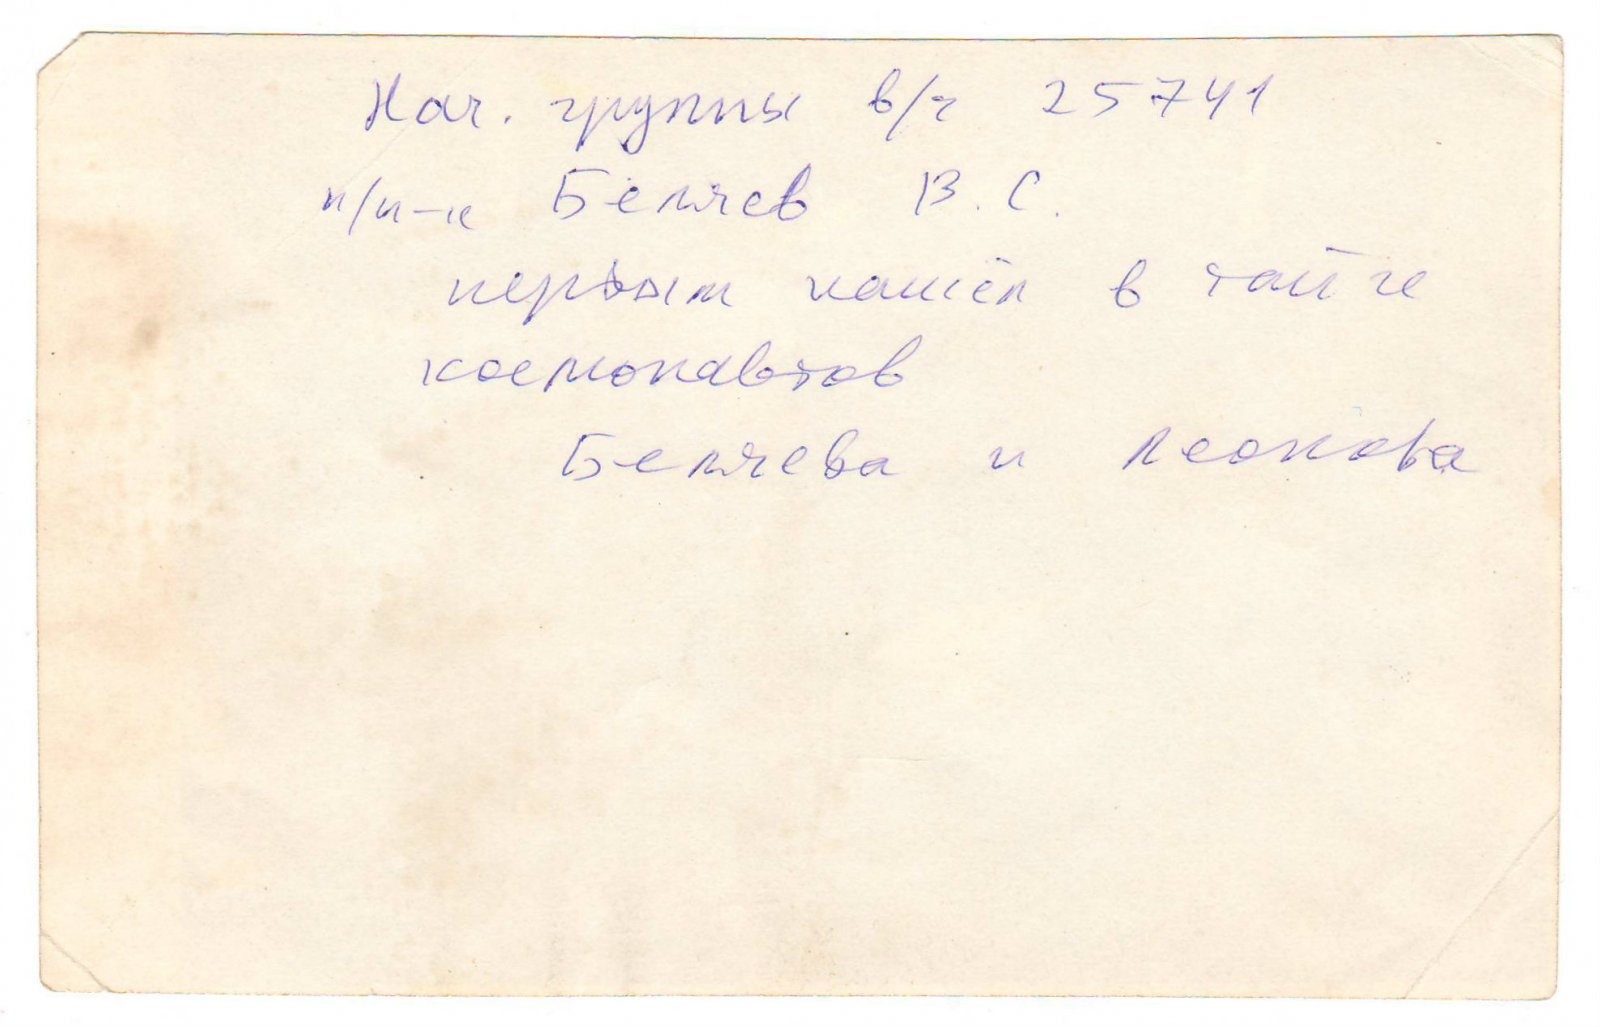 Нач. группы в/ч 25741
п/п-к Беляев В. С.
первым нашёл в тайге
космонавтов
Беляева и Леонова